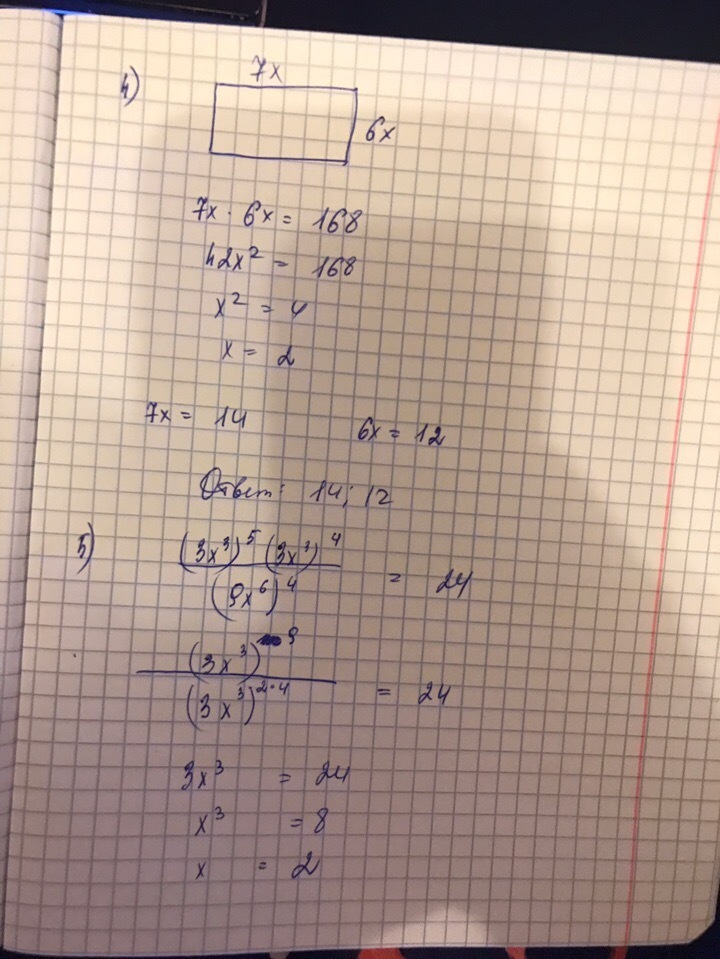 4)
7x
6x
7x · 6x = 168
42x² = 168
x² = 4
x = 2
7x = 14 6x = 12
Ответ: 14; 12
5)
(3x³)⁵ (3x³)⁴ / (9x⁶)⁴ = 24
(3x³)⁹ / (3x³)²·⁴ = 24
3x³ = 24
x³ = 8
x = 2